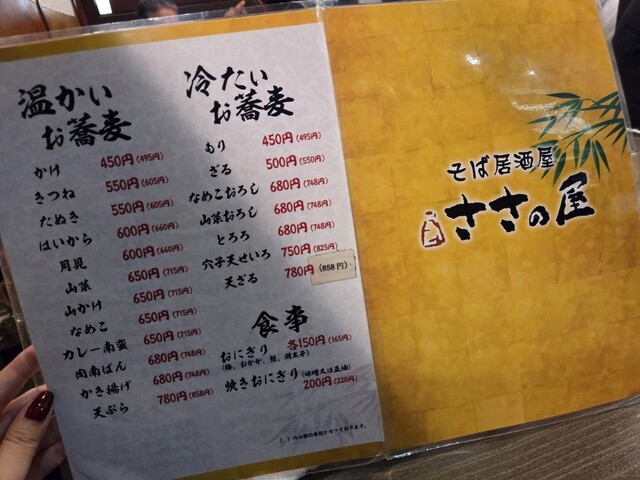 温かい
お蕎麦
かけ 450円(495円)
きつね 550円(605円)
たぬき 550円(605円)
はいから 600円(660円)
月見 600円(660円)
山菜 650円(715円)
山かけ 650円(715円)
なめこ 650円(715円)
カレー南蛮 650円(715円)
肉南ばん 680円(748円)
かき揚げ 680円(748円)
天ぷら 780円(858円)
冷たい
お蕎麦
もり 450円(495円)
ざる 500円(550円)
なめこおろし 680円(748円)
山菜おろし 680円(748円)
とろろ 680円(748円)
穴子天せいろ 750円(825円)
天ざる 780円(858円)
食事
おにぎり 各150円(165円)
(梅、おかか、鮭、明太子)
焼きおにぎり(味噌又は正油)
200円(220円)
そば居酒屋
ささの屋